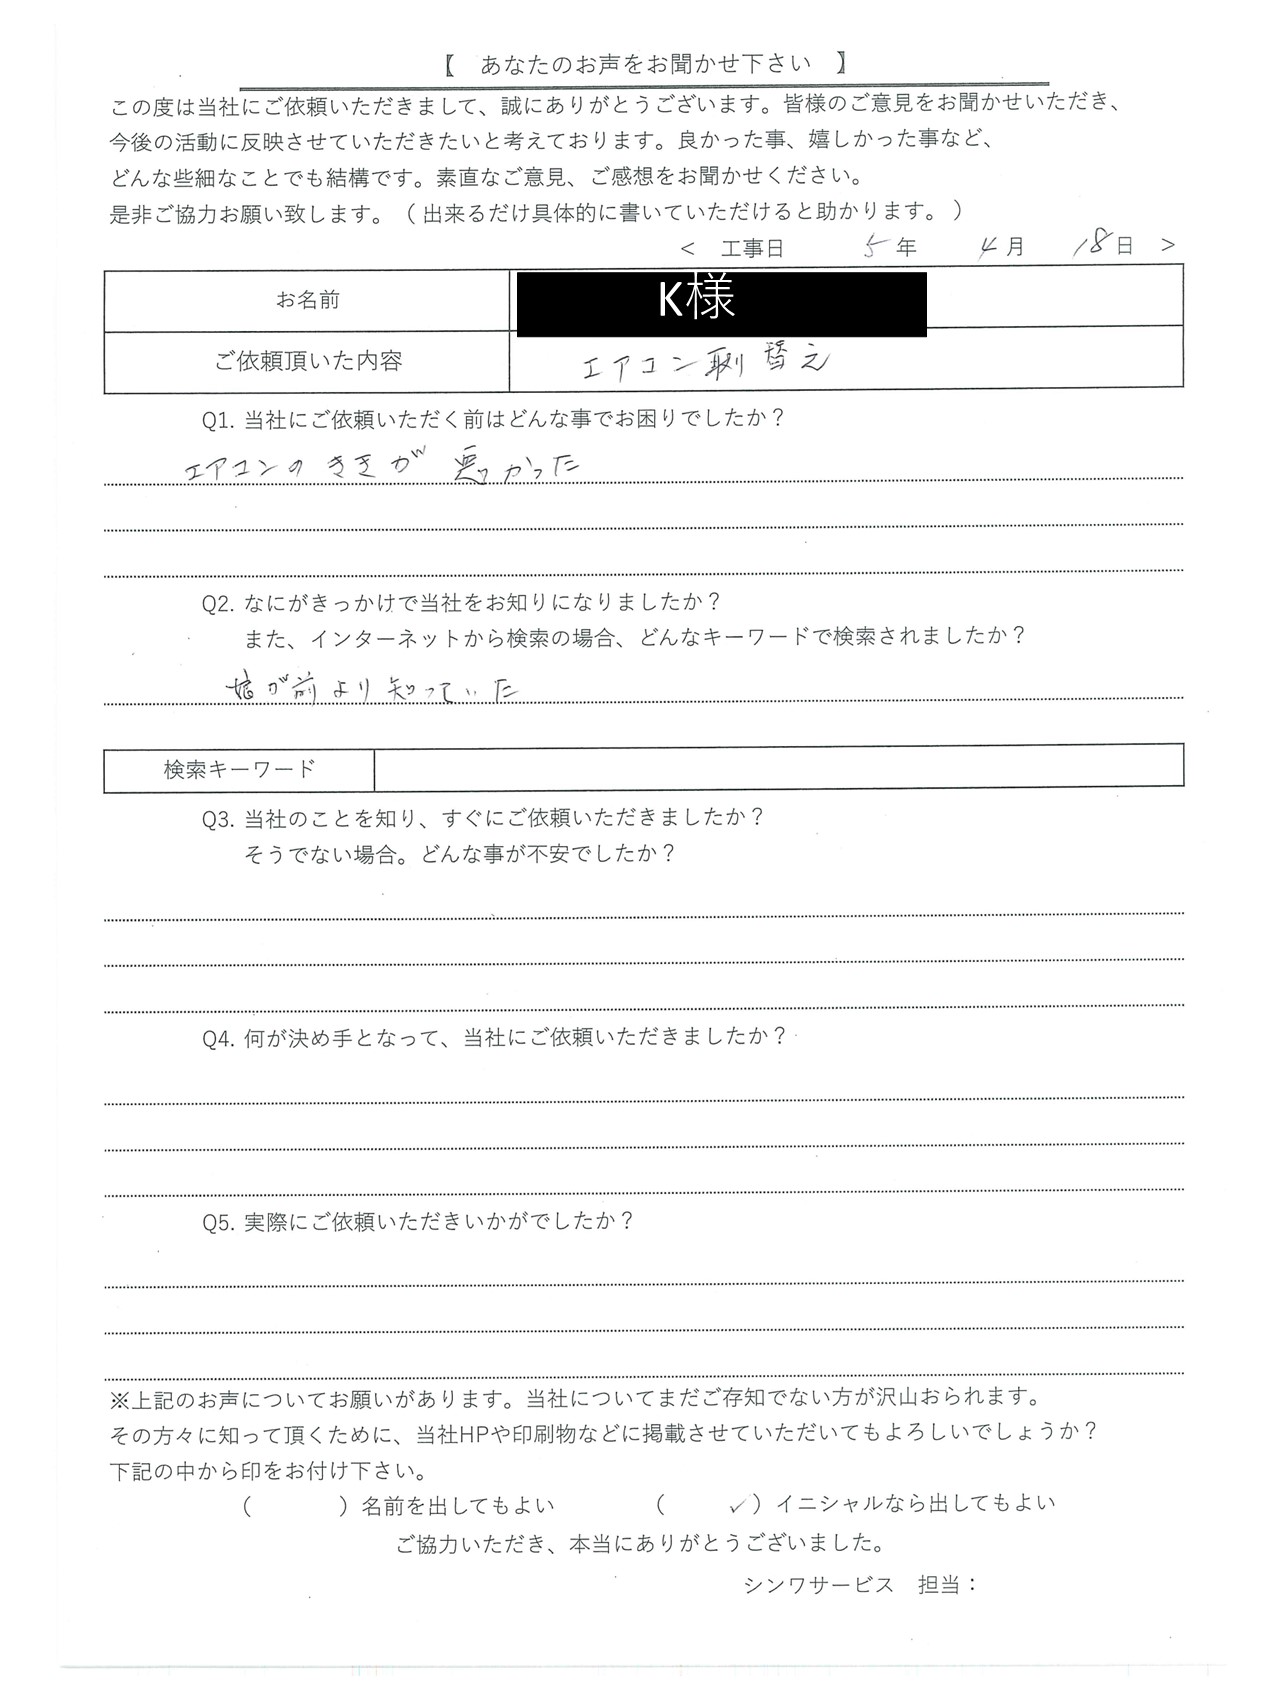 【　あなたのお声をお聞かせ下さい　】
この度は当社にご依頼いただきまして、誠にありがとうございます。皆様のご意見をお聞かせいただき、
今後の活動に反映させていただきたいと考えております。良かった事、嬉しかった事など、
どんな些細なことでも結構です。素直なご意見、ご感想をお聞かせください。
是非ご協力お願い致します。（出来るだけ具体的に書いていただけると助かります。）
＜　工事日　5年　4月　18日　＞
お名前　K様
ご依頼頂いた内容　エアコン取替え
Q1. 当社にご依頼いただく前はどんな事でお困りでしたか？
エアコンのききが悪かった
Q2. なにがきっかけで当社をお知りになりましたか？
また、インターネットから検索の場合、どんなキーワードで検索されましたか？
娘が前より知っていた
検索キーワード
Q3. 当社のことを知り、すぐにご依頼いただきましたか？
そうでない場合。どんな事が不安でしたか？
Q4. 何が決め手となって、当社にご依頼いただきましたか？
Q5. 実際にご依頼いただきいかがでしたか？
※上記のお声についてお願いがあります。当社についてまだご存知でない方が沢山おられます。
その方々に知って頂くために、当社HPや印刷物などに掲載させていただいてもよろしいでしょうか？
下記の中から印をお付け下さい。
（　　　）名前を出してもよい　　（　　✓）イニシャルなら出してもよい
ご協力いただき、本当にありがとうございました。
シンワサービス　担当：